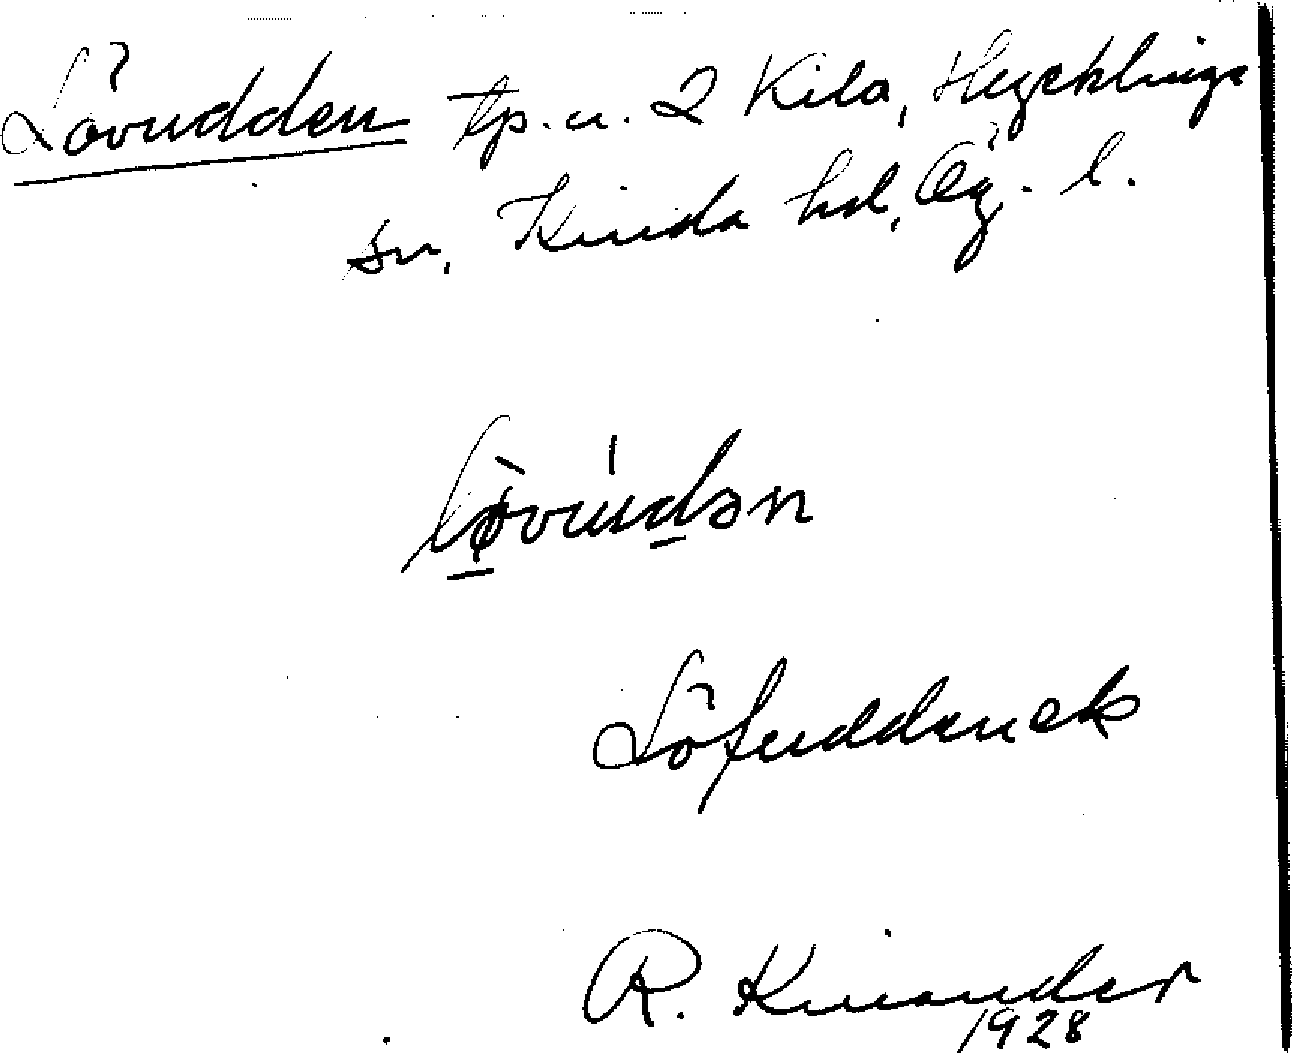 Lövudden tp. u. 2 Kila, Hycklinge
sn, Kinda hd, Ög. l.
Löfudden ek
R. Kinander
1928